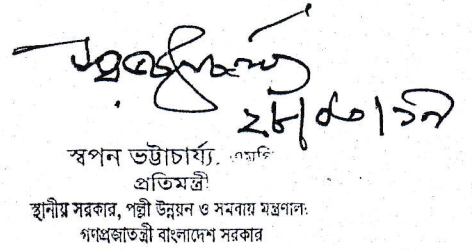 ২৮|০৩|১৯
স্বপন ভট্টাচার্য্য. এমপি
প্রতিমন্ত্রী
স্থানীয় সরকার, পল্লী উন্নয়ন ও সমবায় মন্ত্রণালয়
গণপ্রজাতন্ত্রী বাংলাদেশ সরকার